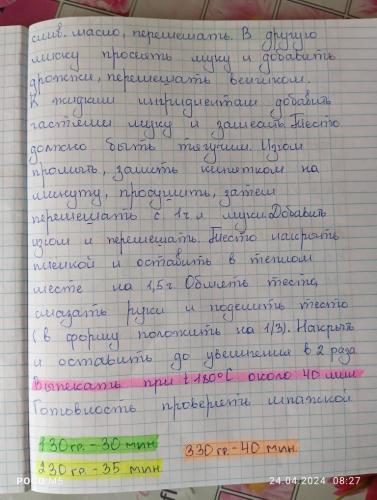 слив. масло, перемешать. В другую
миску просеять муку и добавить
дрожжи, перемешать венчиком.
К жидким ингридиентам добавить
частями муку и замесить. Тесто
должно быть тягучим. Изюм
промыть, залить кипятком на
минуту, просушить, затем
перемешать с 1 ч.л муки. Добавить
изюм и перемешать. Тесто накрыть
пленкой и оставить в теплом
месте на 1,5 ч. Обмять тесто,
смазать руки и поделить тесто
(в форму положить на 1/3). Накрыть
и оставить до увеличения в 2 раза
Выпекать при t 180°C около 40 мин
Готовность проверять шпажкой.
130 гр. - 30 мин.
330 гр. - 40 мин.
230 гр. - 35 мин.
POCO M5
24.04.2024 08:27